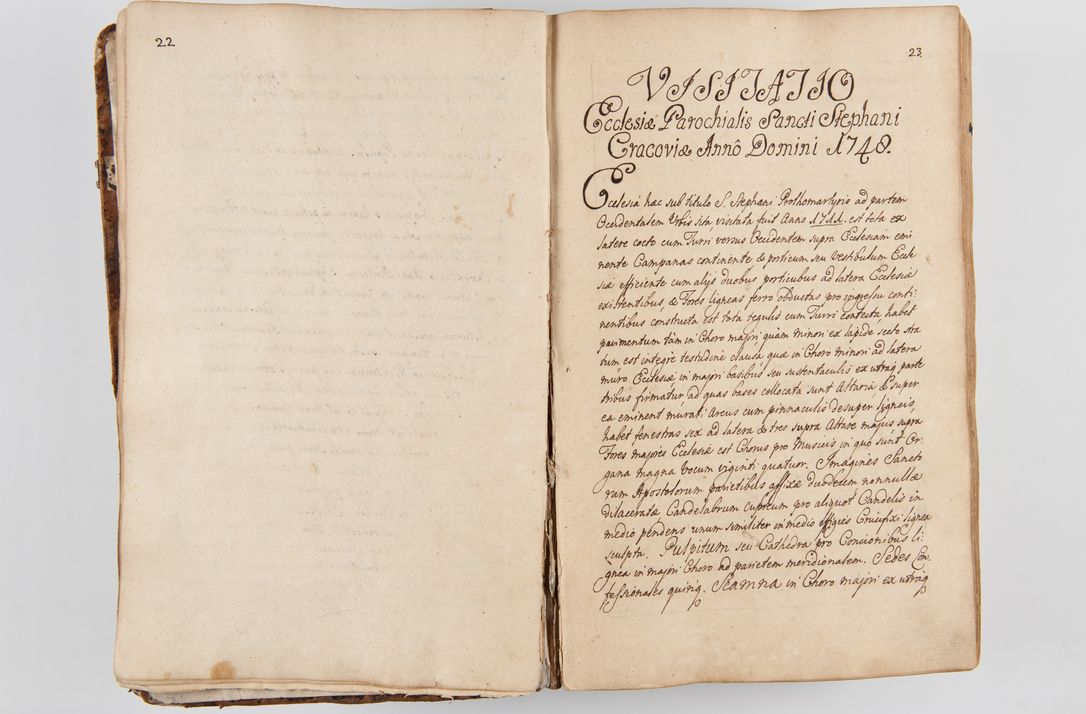 22
23
VISITATIO
Ecclesiæ Parochialis Sancti Stephani
Cracoviæ Annô Domini 1748.
Ecclesia hæc sub titulo S. Stephani Prothomartyris ad partem
Occidentalem Urbis sita, visitata fuit Anno 1711. est tota ex
latere cocto cum Turri versus Occidentem supra Ecclesiam emi
nente Campanas continente & porticum seu Vestibulum Eccle
siæ efficiente cum alijs duobus porticubus ad latera Ecclesiæ
existentibus, & Fores ligneas ferro obductas pro ingressu conti-
nentibus constructa est tota tegulis cum Turri contecta, habet
pavimentum tàm in Choro majori quàm minori ex lapide secto stra
tum est integrè testudine clausa, quæ in Choro minori ad latera
muro Ecclesiæ in majori basibus seu sustentaculis ex utraq parte
tribus firmatur, ad quas bases collocata sunt Altaria, & super
ea eminent murati Arcus cum pinnaculis desuper ligneis,
habet fenestras sex ad latera & tres supra Altare majus, supra
Fores majores Ecclesiæ est Chorus pro Musicis in quo sunt Or-
gana magna vocum viginti quatuor. Imagines Sancto
rum Apostolorum parietibus affixæ duodecim nonnullæ
dilaceratæ Candelabrum cupreum pro aliquot Candelis in
medio pendens unum similiter in medio effigies Crucifixi lignea
sculpta. Pulpitum seu Cathedra pro Concionibus li-
gnea in majori Choro ad parietem meridionalem. Sedes Con-
fessionales quinq. Scamna in Choro majori ex utraq